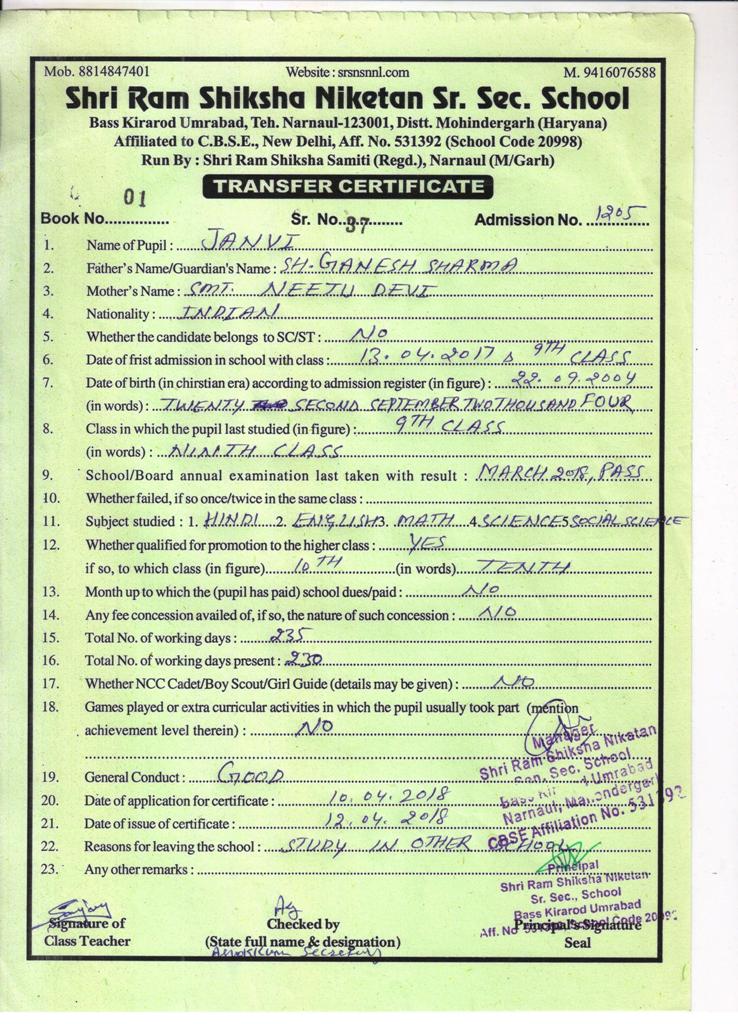 Mob. 8814847401 Website : srsnsnnl.com M. 9416076588
Shri Ram Shiksha Niketan Sr. Sec. School
Bass Kirarod Umrabad, Teh. Narnaul-123001, Distt. Mohindergarh (Haryana)
Affiliated to C.B.S.E., New Delhi, Aff. No. 531392 (School Code 20998)
Run By : Shri Ram Shiksha Samiti (Regd.), Narnaul (M/Garh)
TRANSFER CERTIFICATE
Book No. 01 Sr. No. 37 Admission No. 1205
1. Name of Pupil : JANVI
2. Father's Name/Guardian's Name : SH. GANESH SHARMA
3. Mother's Name : SMT. NEETU DEVI
4. Nationality : INDIAN
5. Whether the candidate belongs to SC/ST : NO
6. Date of frist admission in school with class : 13.04.2017 & 9TH CLASS
7. Date of birth (in chirstian era) according to admission register (in figure) : 22.09.2004
(in words) : TWENTY SECOND SEPTEMBER TWO THOUSAND FOUR
8. Class in which the pupil last studied (in figure) : 9TH CLASS
(in words) : NINTH CLASS
9. School/Board annual examination last taken with result : MARCH 2018, PASS
10. Whether failed, if so once/twice in the same class :
11. Subject studied : 1. HINDI 2. ENGLISH 3. MATH 4. SCIENCE 5 SOCIAL SCIENCE
12. Whether qualified for promotion to the higher class : YES
if so, to which class (in figure) 10TH (in words) TENTH
13. Month up to which the (pupil has paid) school dues/paid : NO
14. Any fee concession availed of, if so, the nature of such concession : NO
15. Total No. of working days : 235
16. Total No. of working days present : 230
17. Whether NCC Cadet/Boy Scout/Girl Guide (details may be given) : NO
18. Games played or extra curricular activities in which the pupil usually took part (mention
achievement level therein) : NO
Manager
Shri Ram Shiksha Niketan
Sen. Sec. School
Bass Kir Umrabad
Narnaul, Mahondergarh
CBSE Affiliation No. 531392
19. General Conduct : GOOD
20. Date of application for certificate : 10.04.2018
21. Date of issue of certificate : 12.04.2018
22. Reasons for leaving the school : STUDY IN OTHER SCHOOL
23. Any other remarks :
Principal
Shri Ram Shiksha Niketan
Sr. Sec., School
Bass Kirarod Umrabad
Aff. No 531392 School Code 20998
Signature of Checked by Principal's Signature
Class Teacher (State full name & designation) Seal
Secretary